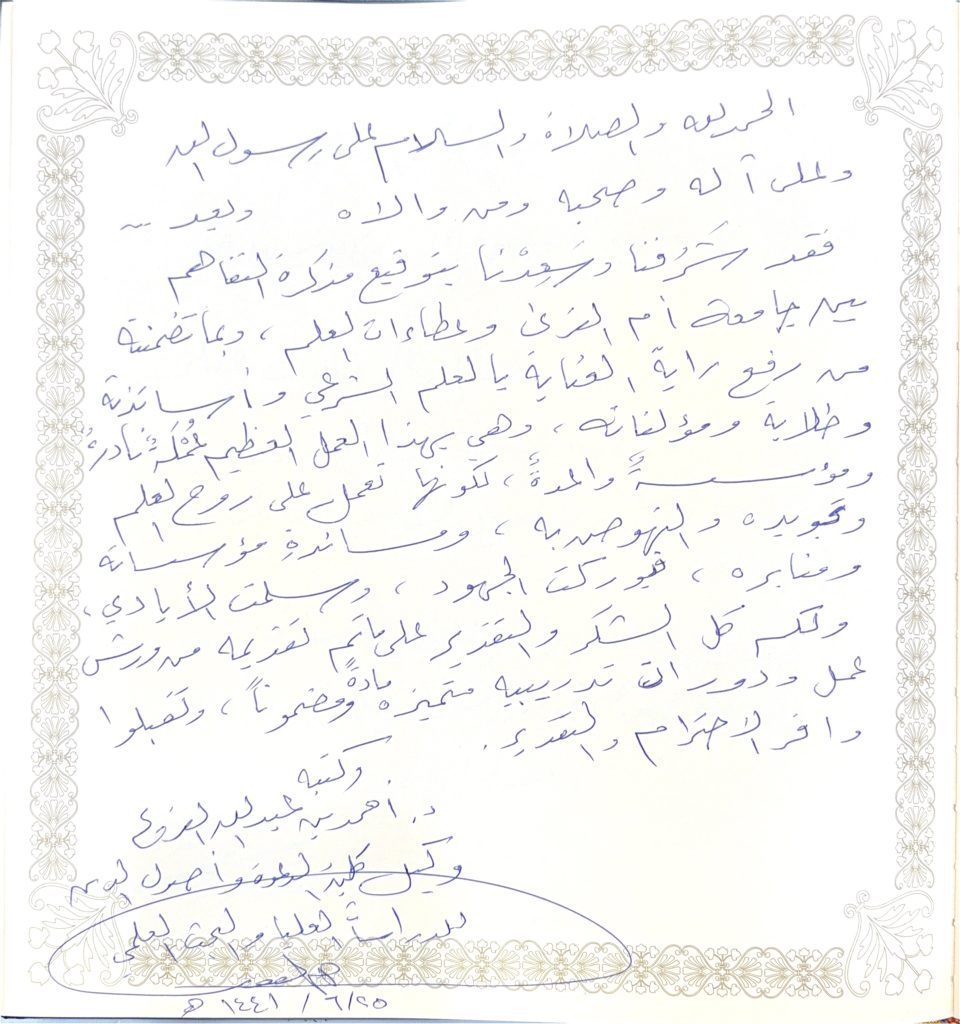 الحمد لله والصلاة والسلام على رسول الله
وعلى آله وصحبه ومن والاه وبعد ..
فقد شَرُفنا وسَعِدْنا بتوقيع مذكرة التفاهم
بين جامعة أم القرى وعطاءات العلم ، وبما تضمنته
من رفع راية العناية بالعلم الشرعي وأساتذته
وطلابه ومؤلفاته ، وهي بهذا العمل العظيم نادرةٌ
ومؤسسةٌ ، لكونها تعمل على روح العلم
وتجويده والنهوض به ، ومساندةِ مؤسساته
ومنابره ، فبوركت الجهود ، وسلمت الأيادي ،
ولكم كل الشكر والتقدير على ما تم تقديمه من ورش
عمل ودورات تدريبيه متميزه مادةً ومضموناً ، وتقبلوا
وافر الاحترام والتقدير .
وكتبه
د. أحمد بن عبد الله
وكيل كلية الدعوة وأصول الدين
للدراسات العليا والبحث العلمي
٢٥/٦/١٤٤١ هـ